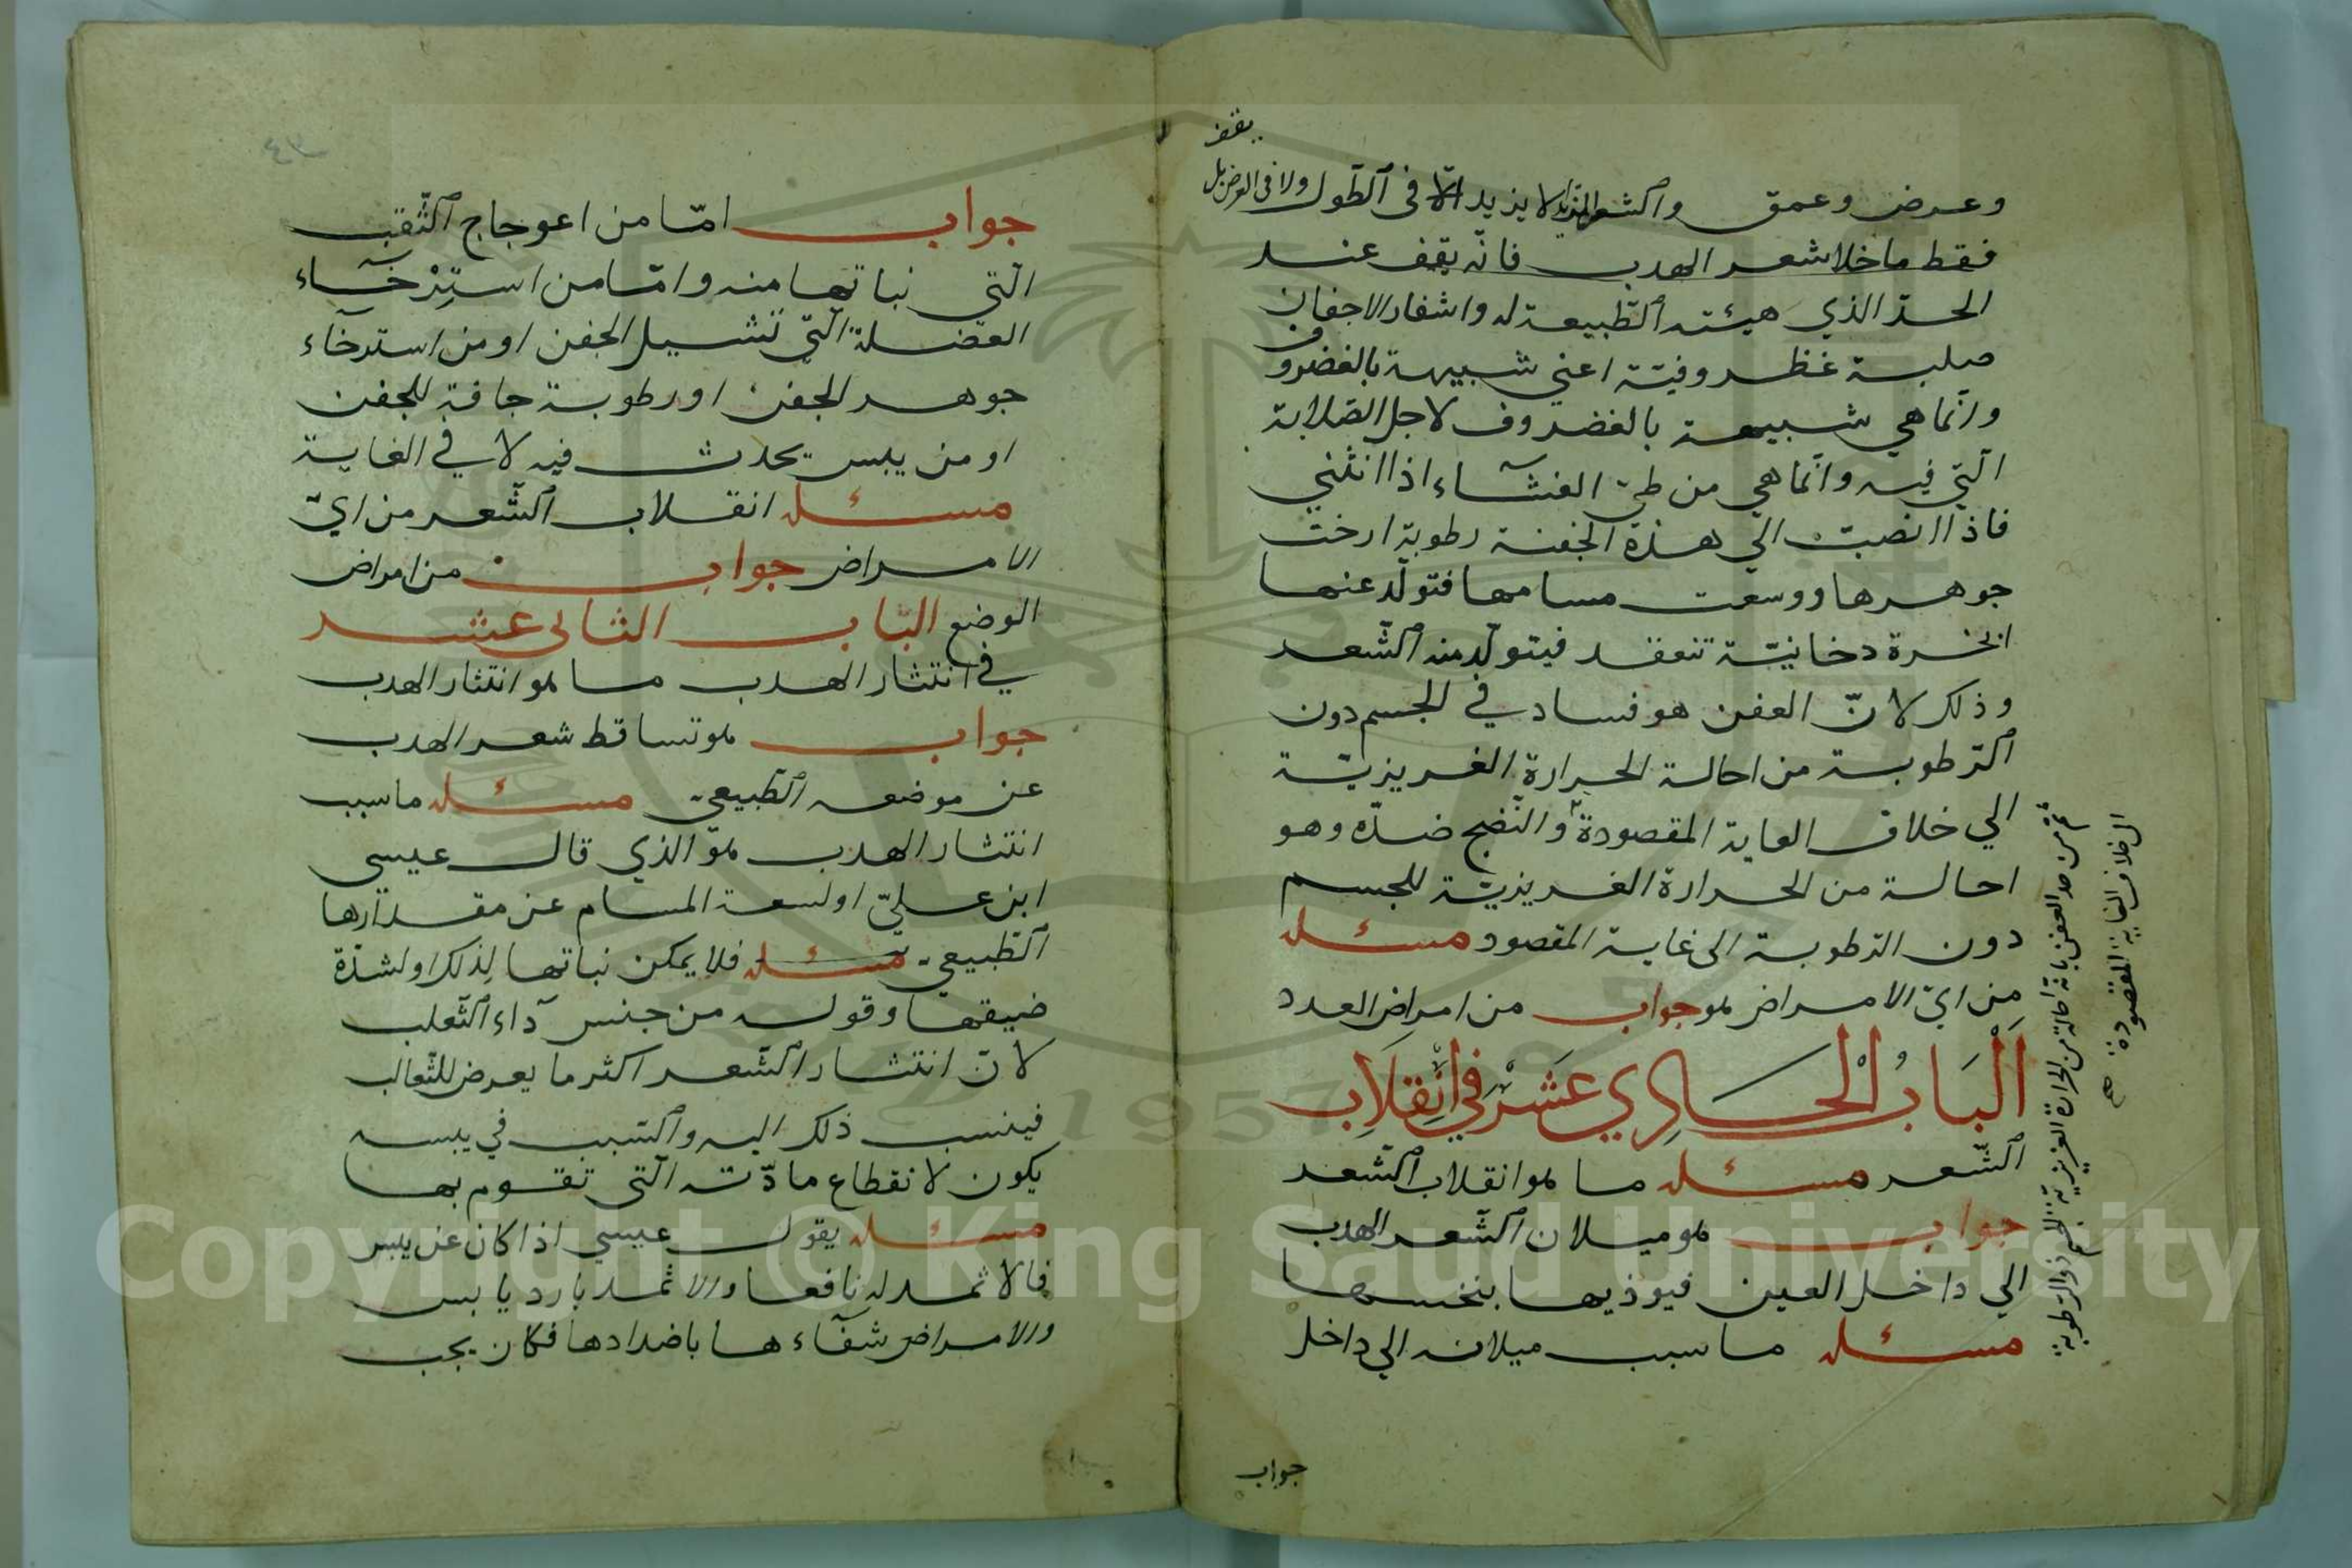 يقف
وعرض وعمق والشعر الزايد لا يزيد الّا فى ٱلطّول ولا فى العرض بل
فقط ما خلا شعر الهدب فانّه يقف عند
الحدّ الذي هيئته ٱلطّبيعة له واشفار الاجفان
صلبة غظروفيّة اعني شبيهة بالغضروف
وانّما هي شبيهة بالغضروف لاجل الصّلابة
الّتي فيه وانّما هي من طيّ الغشآء اذا انثني
فاذا انصبت الي هذه الجفنة رطوبة ارخت
جوهرها ووسعت مسامها فتولّد عنها
ابخرة دخانيّة تنعقد فيتولّد منه ٱلشّعر
وذلك لانّ العفن هو فساد في الجسم دون
ٱلرّطوبة من احالة الحرارة الغريزيّة
الي خلاف الغاية المقصودة والنّضج ضدّه وهو
احالة من الحرارة الغريزيّة للجسم
دون الرّطوبة الى غاية المقصود مسئله
من ايّ الامراض هو جواب من امراض العدد
اَلْبَابُ الْحَادِي عَشَرْ فِي اِنْقِلَابِ
ٱلشّعر مسئله ما هو انقلاب ٱلشّعر
جواب هو ميلان ٱلشّعر الهدب
الي داخل العين فيوذيها بنخسها
مسئله ما سبب ميلانه الي داخل
جواب
من حد العفن بانّه احالة من الحرارة الغريزية للجسم ذو الرّطوبة
الى خلاف الغاية المقصودة صح
٤٣
جواب امّا من اعوجاج ٱلثّقب
الّتي نباتها منه وامّا من استِرْخآء
العضلة الّتي تشيل الجفن او من استرخآء
جوهر الجفن او رطوبة جافة للجفن
او من يبس يحدث فيه لا في الغاية
مسئله انقلاب ٱلشّعر من ايّ
الامراض جواب من امراض
الوضع الباب الثانى عشر
في انتثار الهدب ما هو انتثار الهدب
جواب هو تساقط شعر الهدب
عن موضعه ٱلطّبيعي مسئله ما سبب
انتثار الهدب هو الذي قال عيسى
ابن عليّ او لسعة المسام عن مقدارها
ٱلطّبيعي مسئله فلا يمكن نباتها لذلك او لشدّة
ضيقها وقوله من جنس دآء الثّعلب
لانّ انتثار الشّعر اكثر ما يعرض للثّعالب
فينسب ذلك اليه والسّبب في يبسه
يكون لانقطاع مادّته الّتى تقوم بها
مسئله يقول عيسي اذا كان عن يبس
فالاثمد له نافعا والاثمد بارد يابس
والامراض شفآءها باضدادها فكان يجب
Copyright © King Saud University
1957